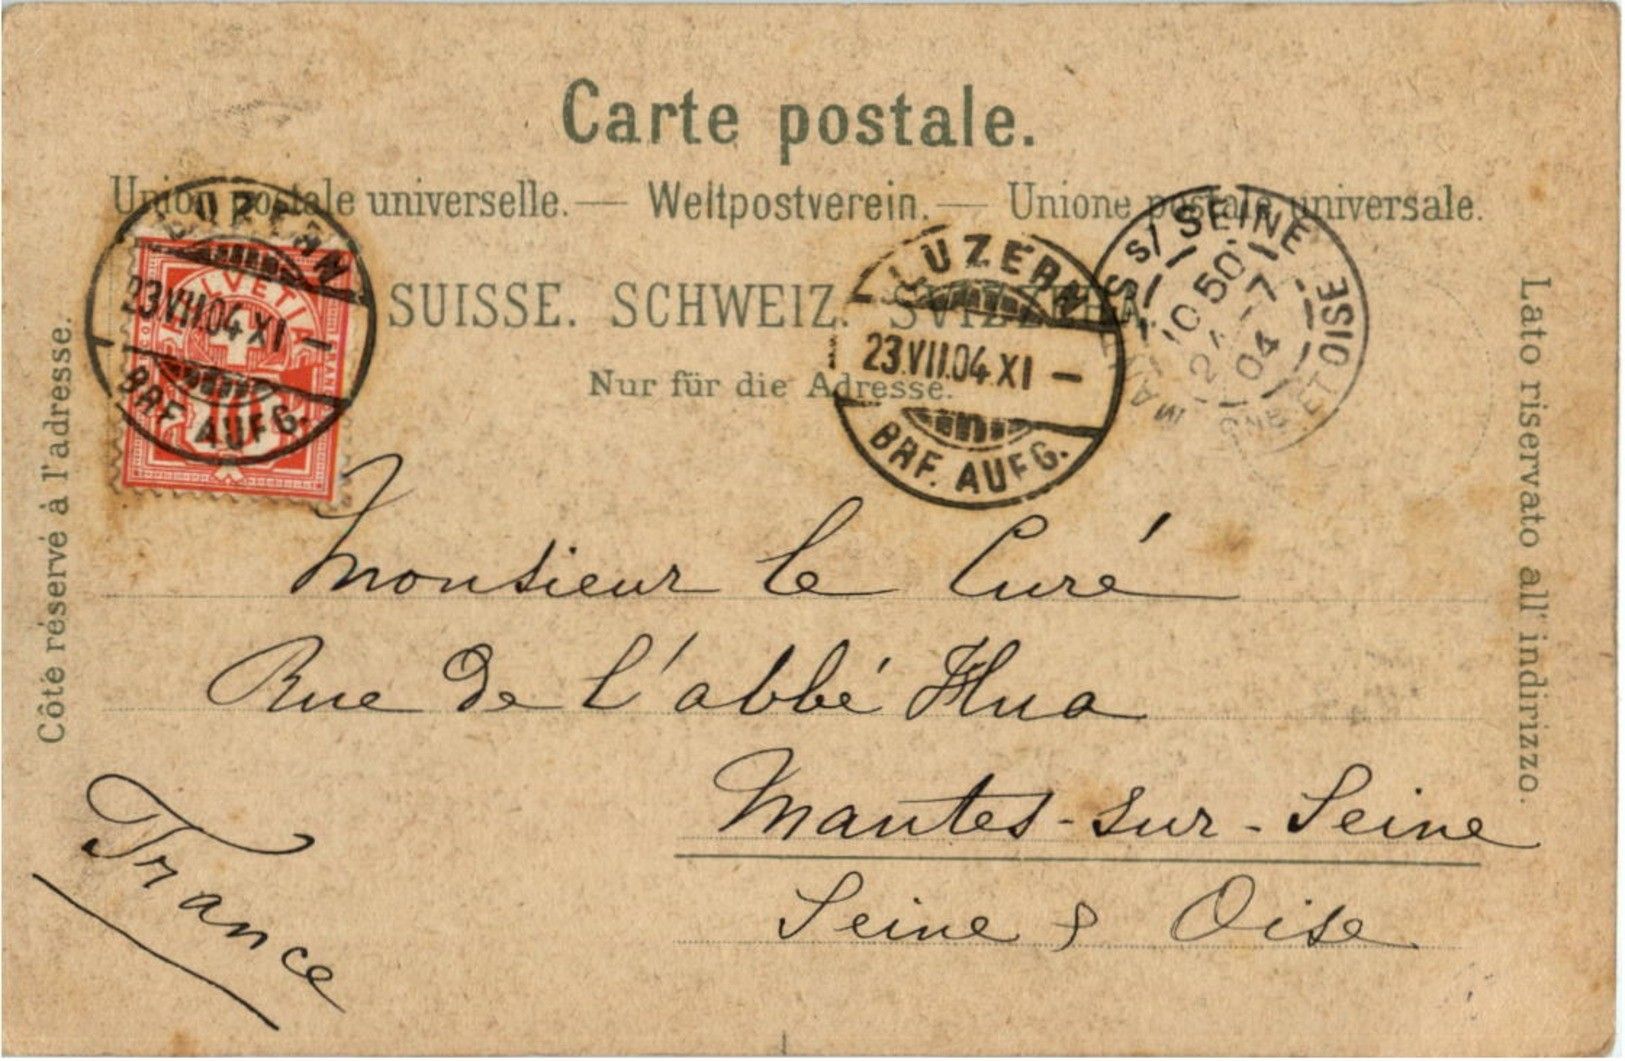 Carte postale.
Union postale universelle. — Weltpostverein. — Unione postale universale.
SUISSE. SCHWEIZ. SVIZZERA.
Nur für die Adresse.
Côté réservé à l'adresse.
Lato riservato all' indirizzo.
HELVETIA
10
LUZERN
23.VII.04.XI –
BRF. AUFG.
LUZERN
23.VII.04.XI –
BRF. AUFG.
MANTES S/ SEINE
10 50
24 - 7
04
SEINE ET OISE
Monsieur le Curé
Rue de l'abbé Hua
Mantes-sur-Seine
Seine & Oise
France